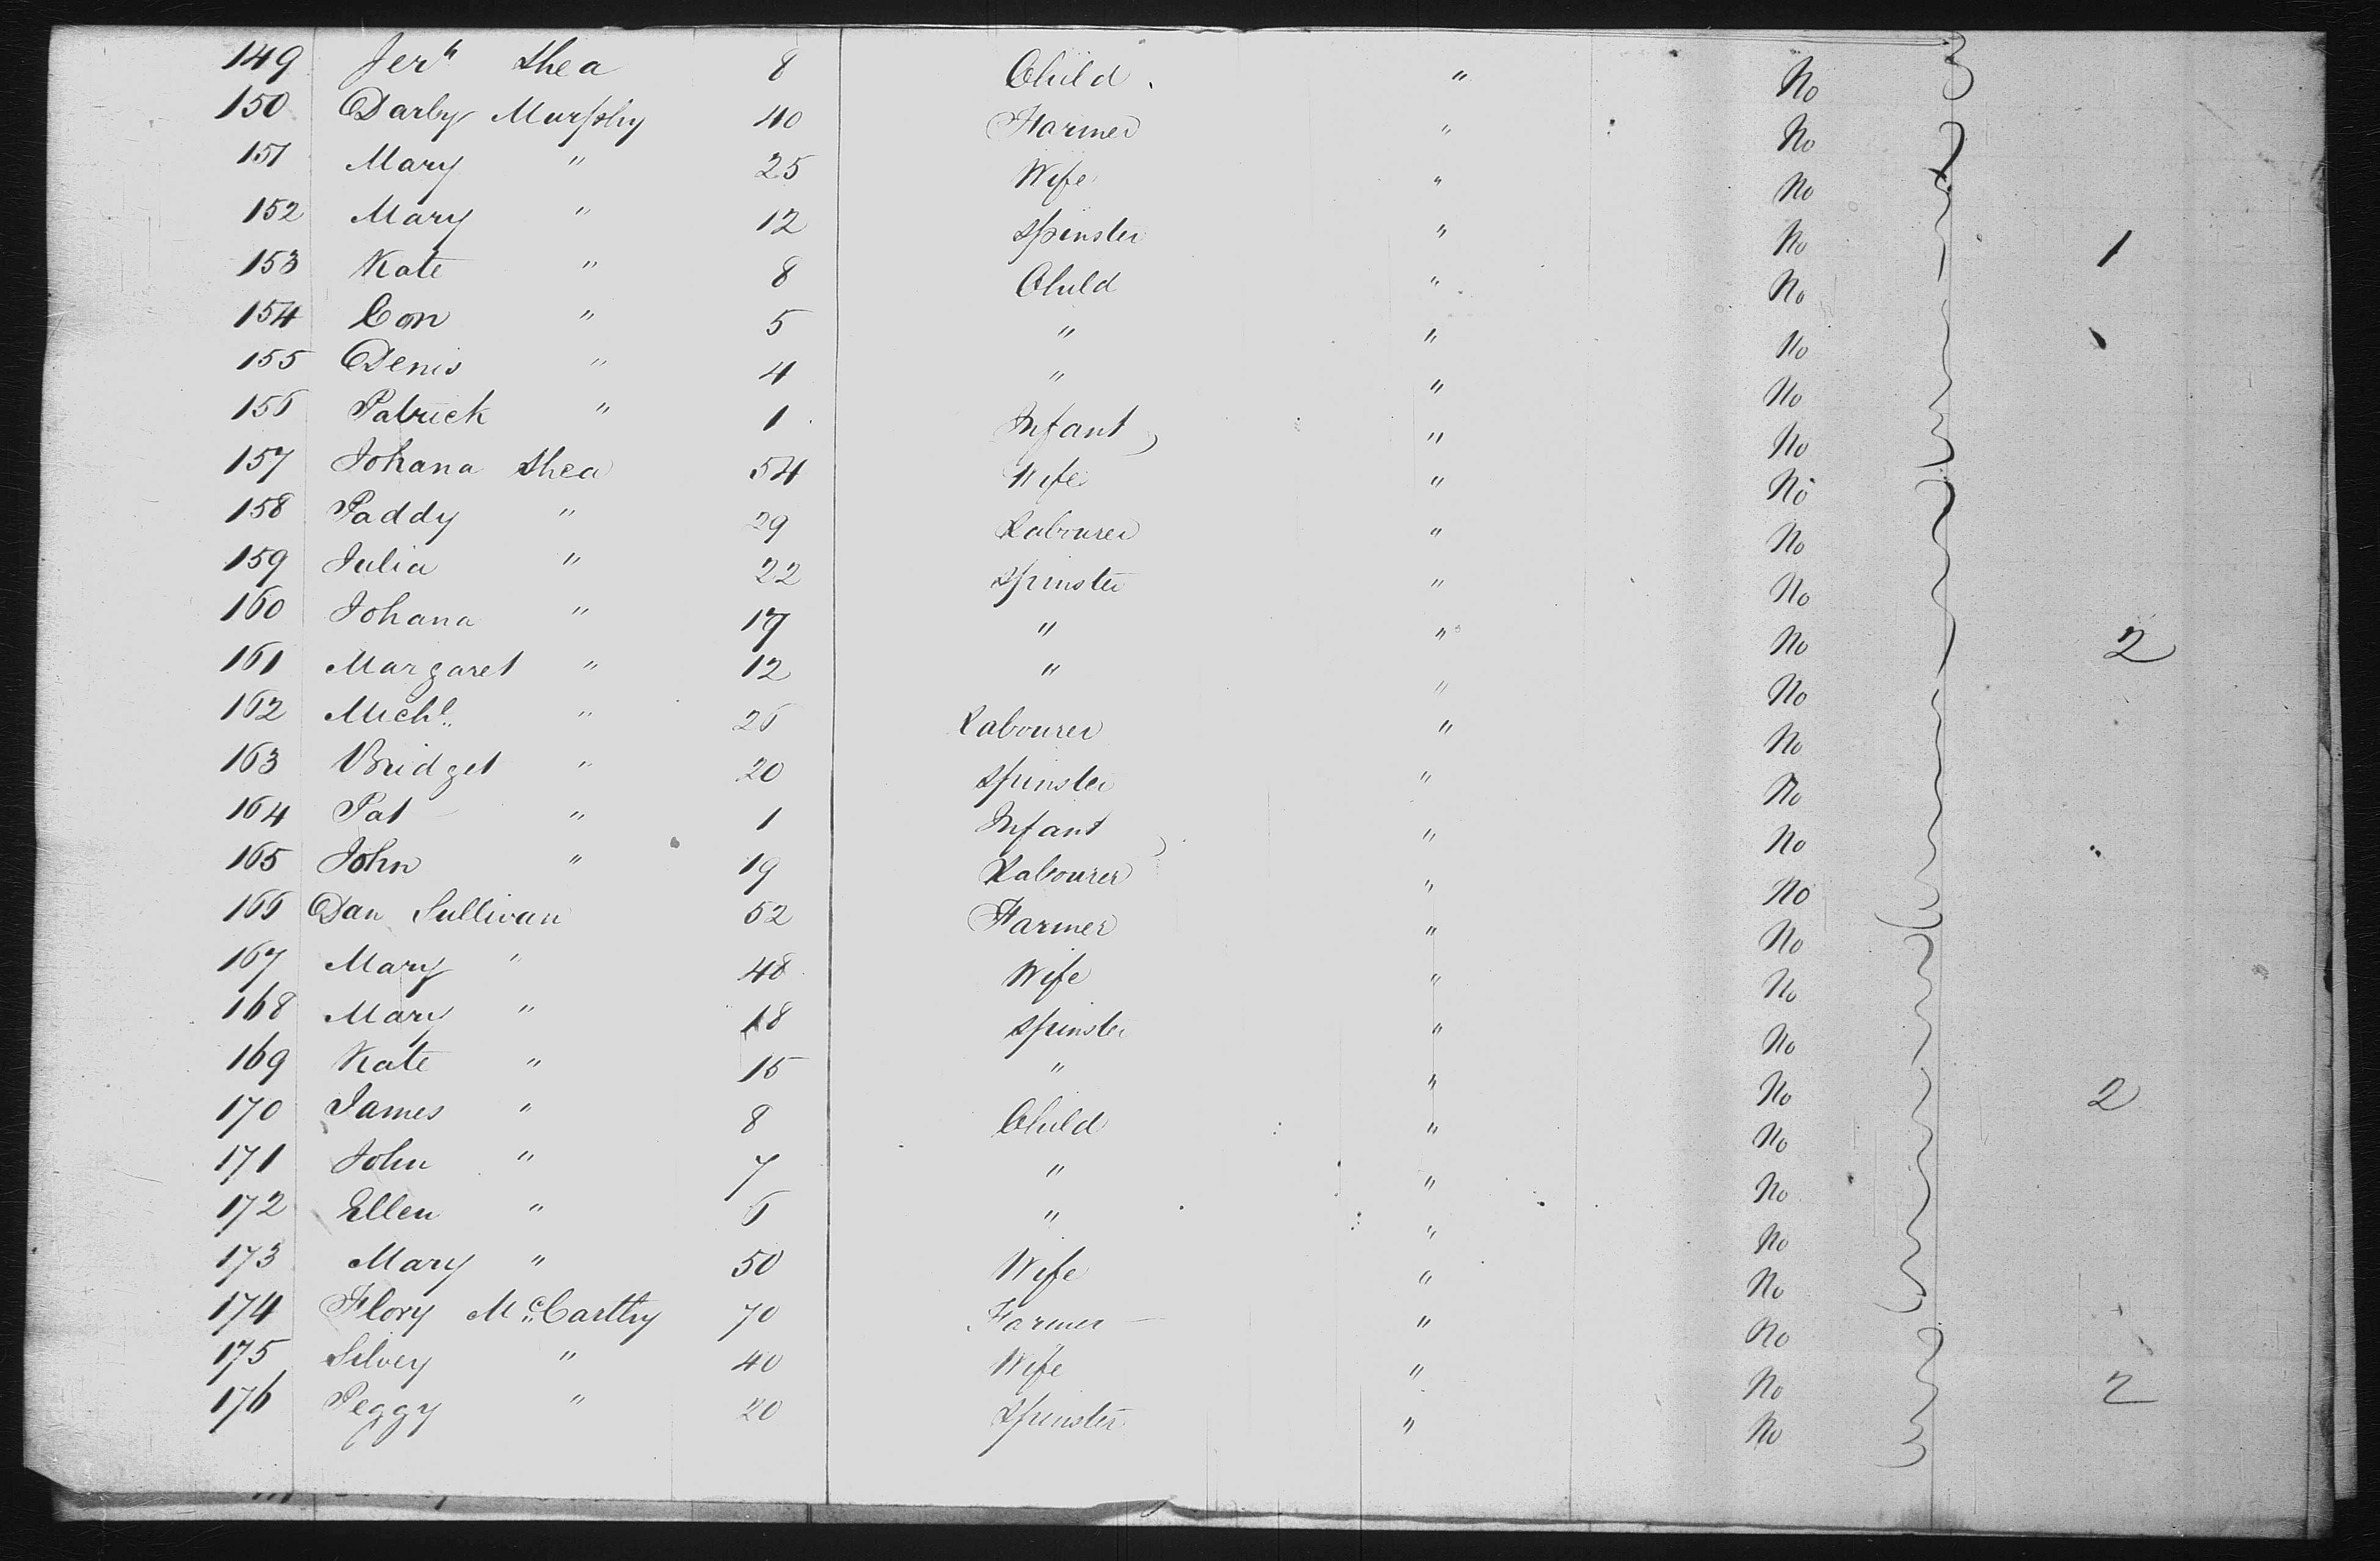 149 Jerh Shea 8 Child " No
150 Darby Murphy 40 Farmer " No
151 Mary " 25 Wife " No
152 Mary " 12 Spinster " No 1
153 Kate " 8 Child " No
154 Con " 5 " " No
155 Denis " 4 " " No
156 Patrick " 1 Infant " No
157 Johana Shea 54 Wife " No
158 Paddy " 29 Labourer " No
159 Julia " 22 Spinster " No
160 Johana " 17 " " No 2
161 Margaret " 12 " " No
162 Michl " 26 Labourer " No
163 Bridget " 20 Spinster " No
164 Pat " 1 Infant " No
165 John " 19 Labourer " No
166 Dan Sullivan 52 Farmer " No
167 Mary " 48 Wife " No
168 Mary " 18 Spinster " No
169 Kate " 15 " " No 2
170 James " 8 Child " No
171 John " 7 " " No
172 Ellen " 6 " " No
173 Mary " 50 Wife " No
174 Flory McCarthy 70 Farmer " No
175 Silvey " 40 Wife " No 2
176 Peggy " 20 Spinster " No